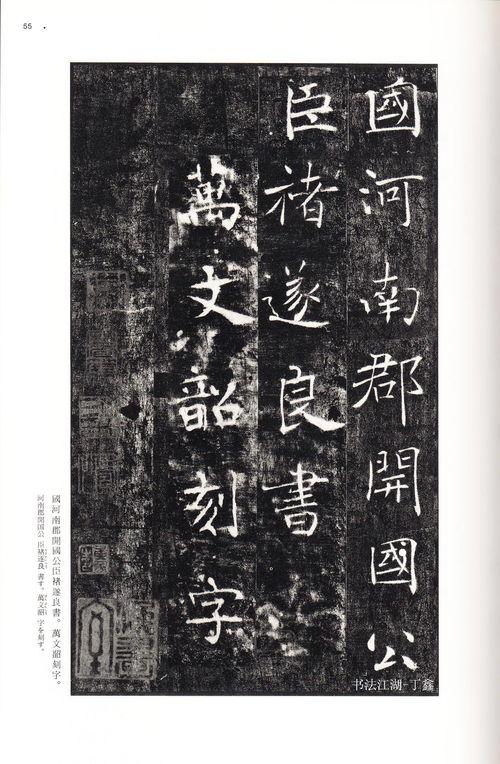 55
國河南郡開國公
臣褚遂良書
萬文韶刻字
國河南郡開國公臣褚遂良書。萬文韶刻字。
河南郡開国公 臣褚遂良 書す。萬文韶 字を刻す。
书法江湖-丁鑫